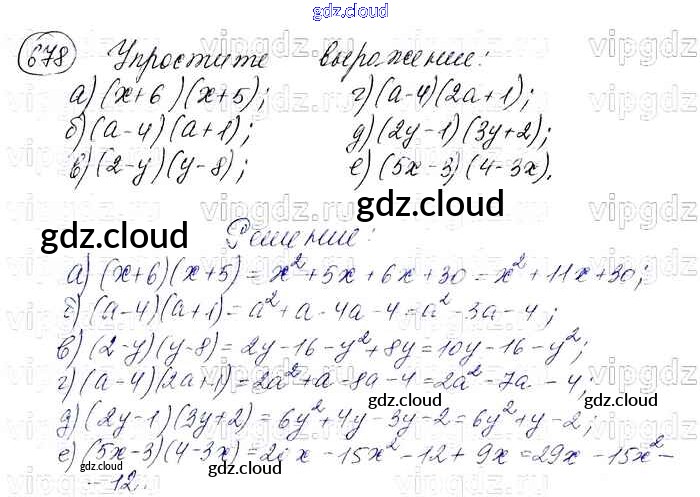 gdz.cloud
678 Упростите выражение:
а) (x+6)(x+5); г) (a-4)(2a+1);
б) (a-4)(a+1); д) (2y-1)(3y+2);
в) (2-y)(y-8); е) (5x-3)(4-3x).
gdz.cloud
gdz.cloud
Решение:
а) (x+6)(x+5) = x²+5x+6x+30 = x²+11x+30;
б) (a-4)(a+1) = a²+a-4a-4 = a²-3a-4;
в) (2-y)(y-8) = 2y-16-y²+8y = 10y-16-y²;
г) (a-4)(2a+1) = 2a²+a-8a-4 = 2a²-7a-4;
gdz.cloud
gdz.cloud
д) (2y-1)(3y+2) = 6y²+4y-3y-2 = 6y²+y-2;
е) (5x-3)(4-3x) = x-15x²-12+9x = 29x-15x²-
gdz.cloud
gdz.cloud
-12.